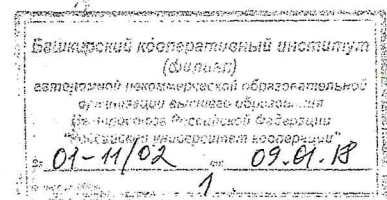 Башкирский кооперативный институт
(филиал)
автономной некоммерческой образовательной
организации высшего образования
Центросоюза Российской Федерации
"Российский университет кооперации"
01-11/02 от 09.01.18
1